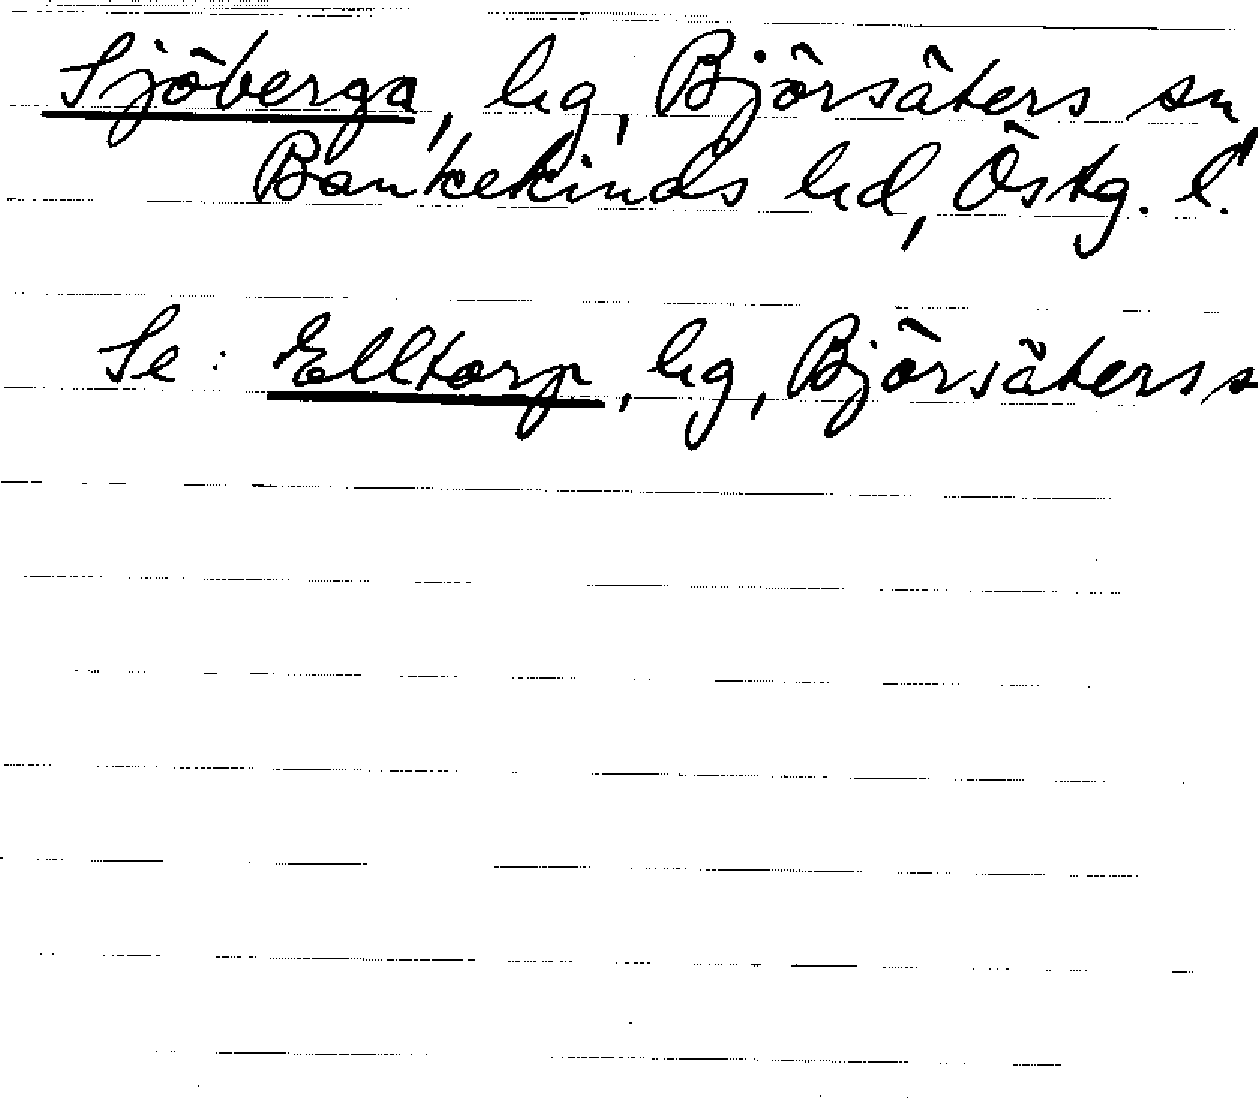 Sjöberga, hg, Björsäters sn
Bankekinds hd, Östg. l.
Se: Elltorp, hg, Björsäters s